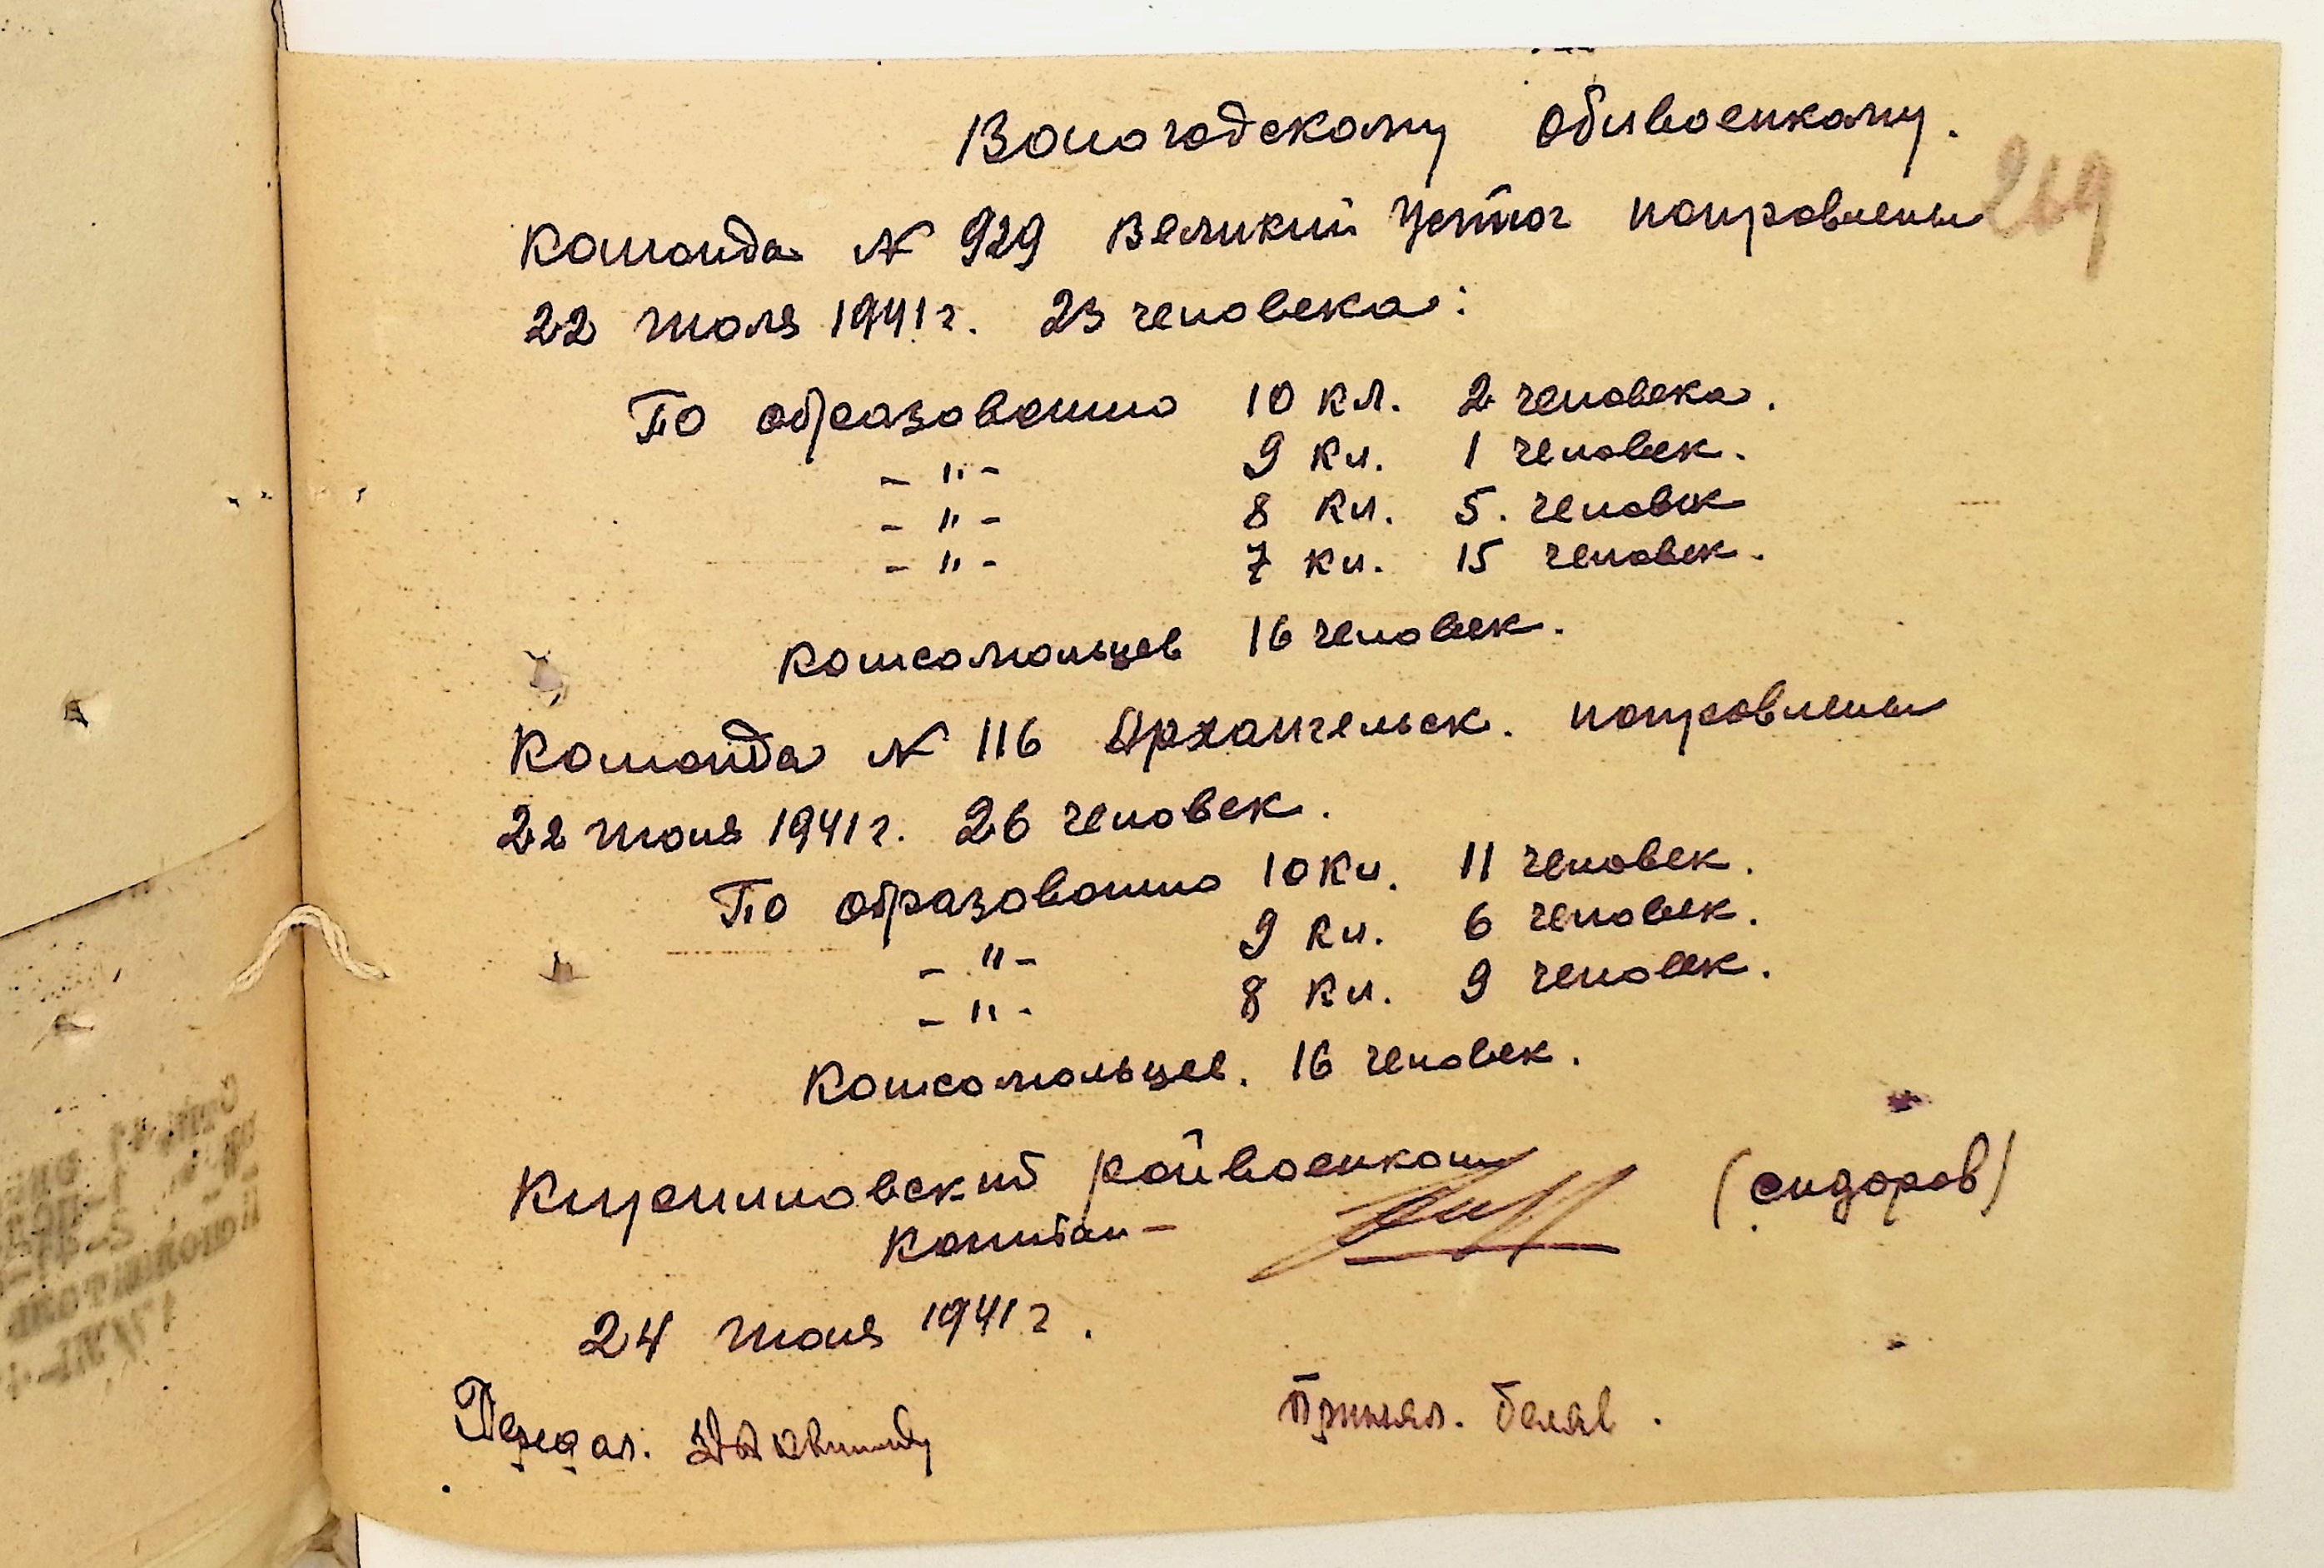 Вологодскому Облвоенкому.
219
Команда № 929 Великий Устюг направлены
22 июля 1941 г. 23 человека:
По образованию 10 кл. 2 человека.
- " - 9 кл. 1 человек.
- " - 8 кл. 5. человек
- " - 7 кл. 15 человек.
Комсомольцев 16 человек.
Команда № 116 Архангельск. направлены
22 июля 1941 г. 26 человек.
По образованию 10 кл. 11 человек.
- " - 9 кл. 6 человек.
- " - 8 кл. 9 человек.
Комсомольцев. 16 человек.
Кирилловский райвоенком
Капитан - (Сидоров)
24 июля 1941 г.
Передал.
Принял. Белов.